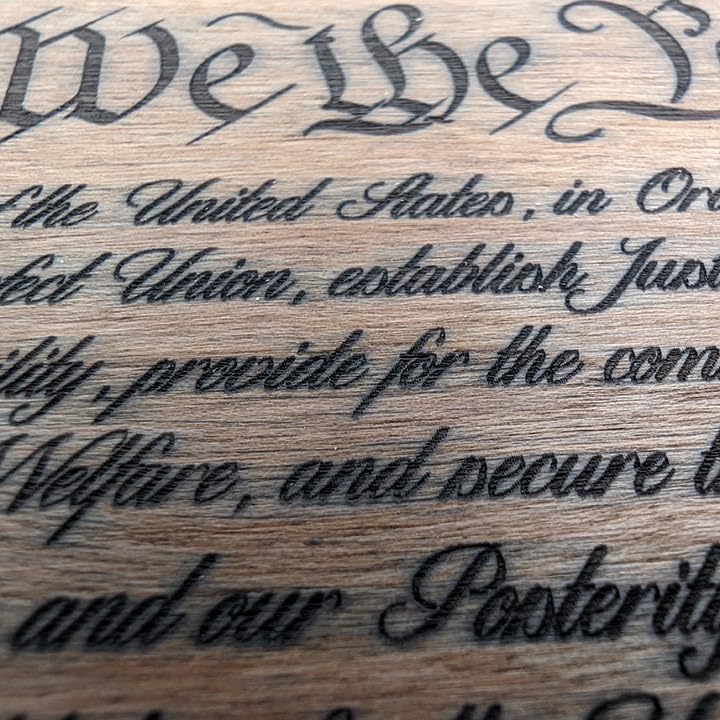 We The
the United States, in Or
fect Union, establish Just
ility, provide for the com
Welfare, and secure t
and our Posterity